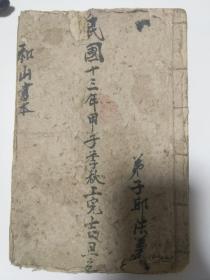 民國十三年甲子季秋上完士旦立
弟子邱法
和山書本